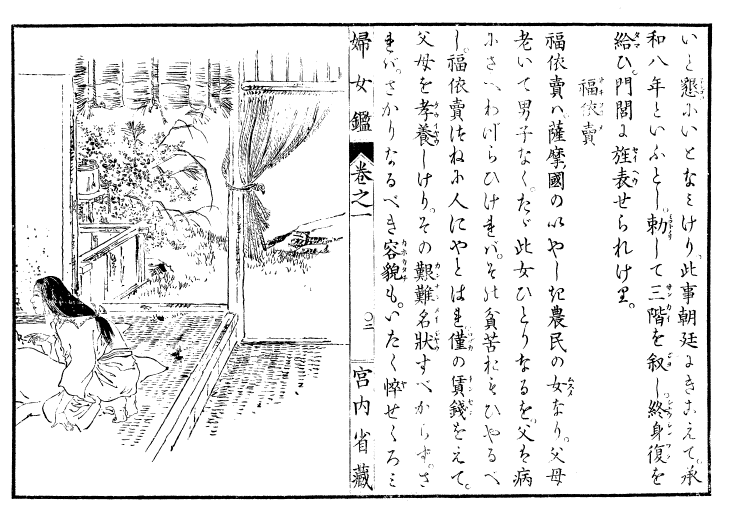 いと懇にいとなミけり。此事朝廷にきこえて。承
和八年といふとし。勅して三階を叙し。終身復を
給ひ。門閭に旌表せられけり。
福依賣
福依賣ハ薩摩國のいやしき農民の女なり。父母
老いて男子なく。たゞ此女ひとりなるを。父は病
にさへわづらひければ。その貧苦おもひやるべ
し。福依賣つねに人にやとはれ僅の賃錢をえて。
父母を孝養しけり。その艱難名狀すべからず。さ
れバ。さかりなるべき容貌も。いたく悴せくろミ
婦女鑑 卷之一 〇三 宮内省藏